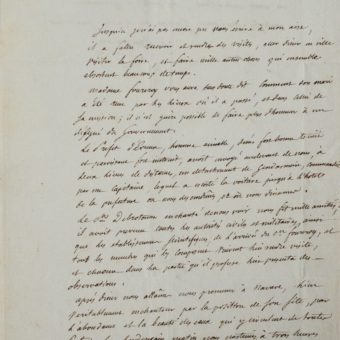 Jusqu'ici je n'ai pas encore pu vous écrire à mon aise,
il a fallu recevoir et rendre des visites, aller dîner en ville
visiter la foire, et faire mille autres choses qui ensemble
absorbent beaucoup de temps.
Madame fourcroy vous aura sans doute dit comment son mari
a été reçu par les lieux où il a passé, et dans celui de
sa mission; il n'est guère possible de faire plus d'honneur à un
délégué du gouvernement.
Le Préfet d'Evreux, homme aimable,
et paroissant fort instruit, avoit envoyé audevant de nous à
deux lieues de distance, un détachement de Gendarmerie, commandé
par un capitaine lequel a escorté la voiture jusqu'à l'hôtel
de la préfecture où nous descendîmes et où nous dînâmes.
enchanté de nous voir nous fit mille amitiés;
il avoit prévenu toutes les autorités civiles et militaires, ainsi
que les établissemens scientifiques de l'arrivée du Cen fourcroy, et
tous les membres qui les composent vinrent lui rendre visite,
et chacun dans la partie qu'il professe lui présenta des
observations.
après dîner nous allâmes nous promener à Navarre, lieu
véritablement enchanteur par la position de son site, par
l'abondance et la beauté des eaux qui y circulent de toutes